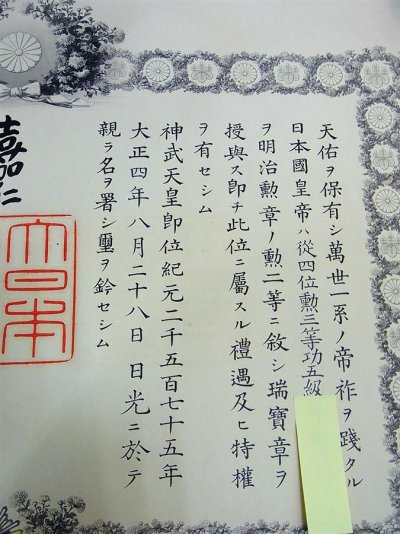 天佑ヲ保有シ萬世一系ノ帝祚ヲ踐タル
日本國皇帝ハ從四位勲三等功五級
ヲ明治勲章ノ勲二等ニ敘シ瑞寶章ヲ
授與ス即チ此位ニ屬スル禮遇及ヒ特權
ヲ有セシム
神武天皇即位紀元二千五百七十五年
大正四年八月二十八日日光ニ於テ
親ラ名ヲ署シ璽ヲ鈐セシム
嘉仁
大日本